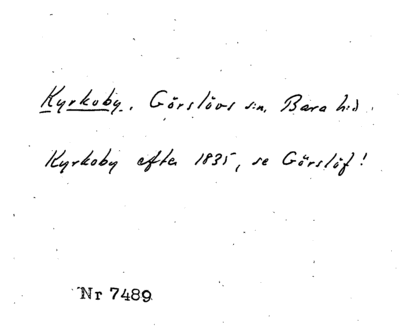 Kyrkoby. Görslövs sn, Bara hd.
Kyrkoby efter 1835, se Görslöf!
Nr 7489